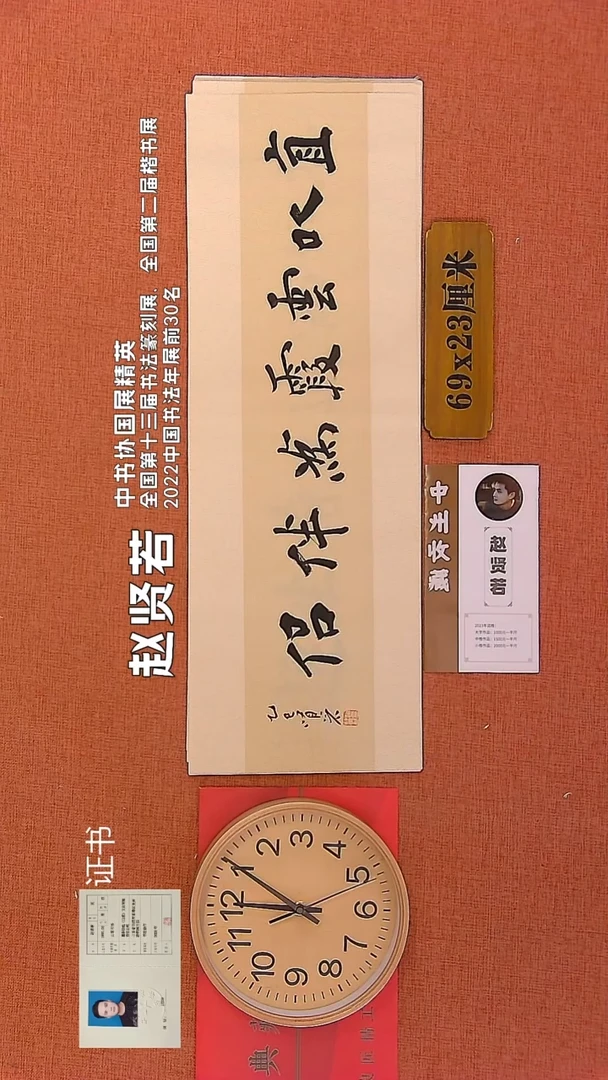 赵贤若
中书协国展精英
全国第十三届书法篆刻展、全国第二届楷书展
2022中国书法年展前30名
直以雲霞為伴侶
乙巳賢若
69x23厘米
赵贤若
证书
12
1
2
3
4
5
6
7
8
9
10
11
典